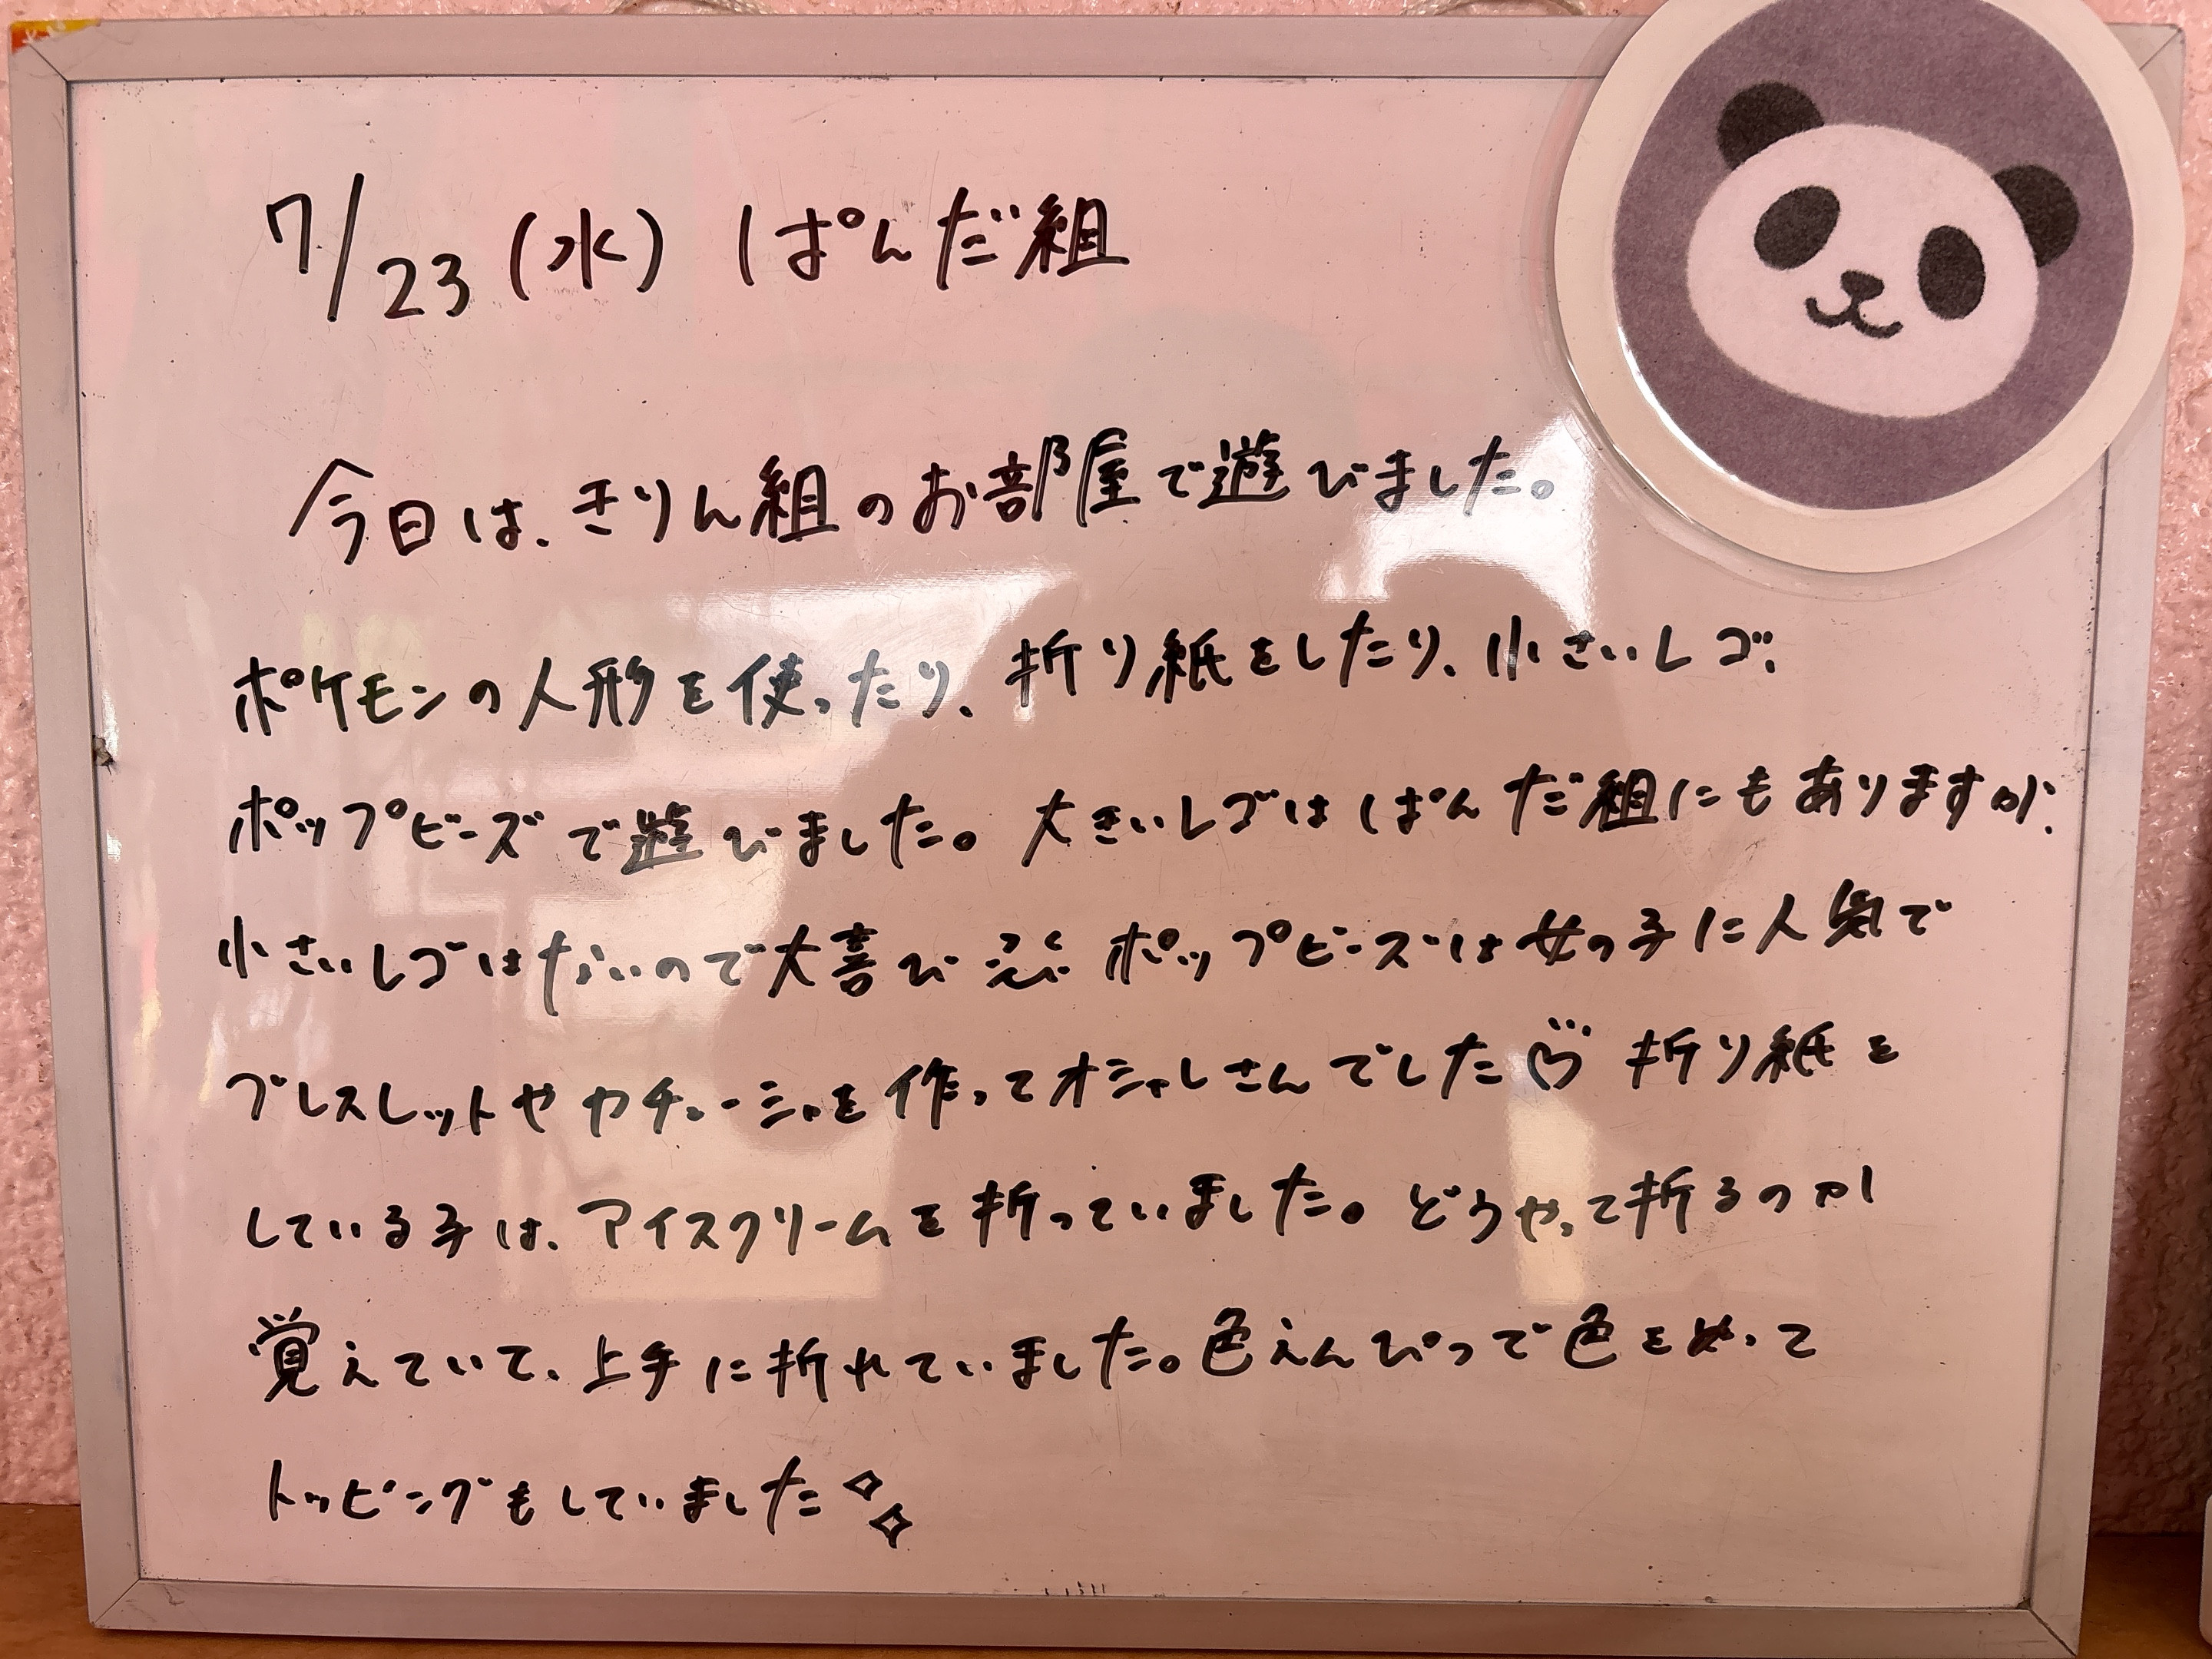 7/23(水) ぱんだ組
今日は、きりん組のお部屋で遊びました。
ポケモンの人形を使ったり、折り紙をしたり、小さいレゴ、
ポップビーズで遊びました。大きいレゴはぱんだ組にもありますが、
小さいレゴはないので大喜び ポップビーズは女の子に人気で
ブレスレットやカチューシャを作ってオシャレさんでした♡ 折り紙を
している子は、アイスクリームを折っていました。どうやって折るのか
覚えていて、上手に折れていました。色えんぴつで色をぬって
トッピングもしていました